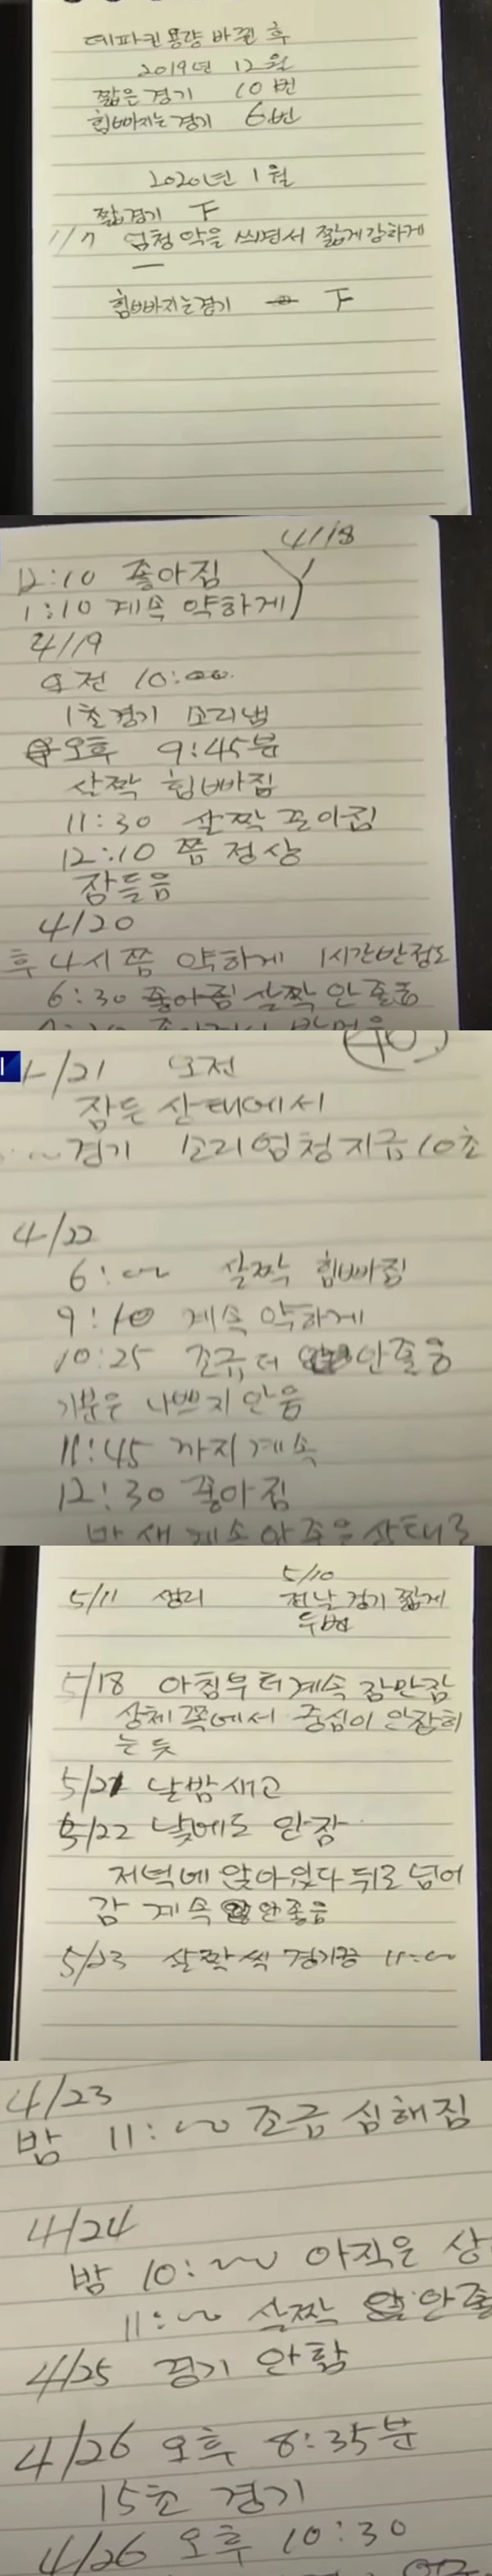 데파킨 용량 바뀐 후
2019년 12월
짧은 경기 10번
힘빠지는 경기 6번
2020년 1월
짧 경기 ㅜ
1/7 엄청 악을 쓰면서 짧게 강하게
힘빠지는 경기 ㅜ
4/18
12:10 좋아짐
1:10 계속 약하게
4/19
오전 10:00
1초 경기 소리냄
오후 9:45분
살짝 힘빠짐
11:30 살짝 좋아짐
12:10 쯤 정상
잠들음
4/20
후 4시쯤 약하게 1시간반정도
6:30 좋아짐 살짝 안좋음
4/21 오전
잠든 상태에서
경기 소리엄청지름 10초
4/22
6:00 살짝 힘빠짐
9:10 계속 약하게
10:25 조금 더 안좋음
기분은 나쁘지 안음
11:45 까지 계속
12:30 좋아짐
5/10
5/11 생리 전날 경기 짧게
두번
5/18 아침부터 계속 잠만잠
상체 쪽에서 중심이 안잡히
는 듯
5/21 날밤 새고
5/22 낮에도 안잠
저녁에 앉아있다 뒤로 넘어
감 계속 안좋음
5/23 살짝씩 경기끔 11:00
4/23
밤 11:00 조금 심해짐
4/24
밤 10:00 아직은 상
11:00 살짝 안좋
4/25 경기 안함
4/26 오후 8:35분
15초 경기
4/26 오후 10:30